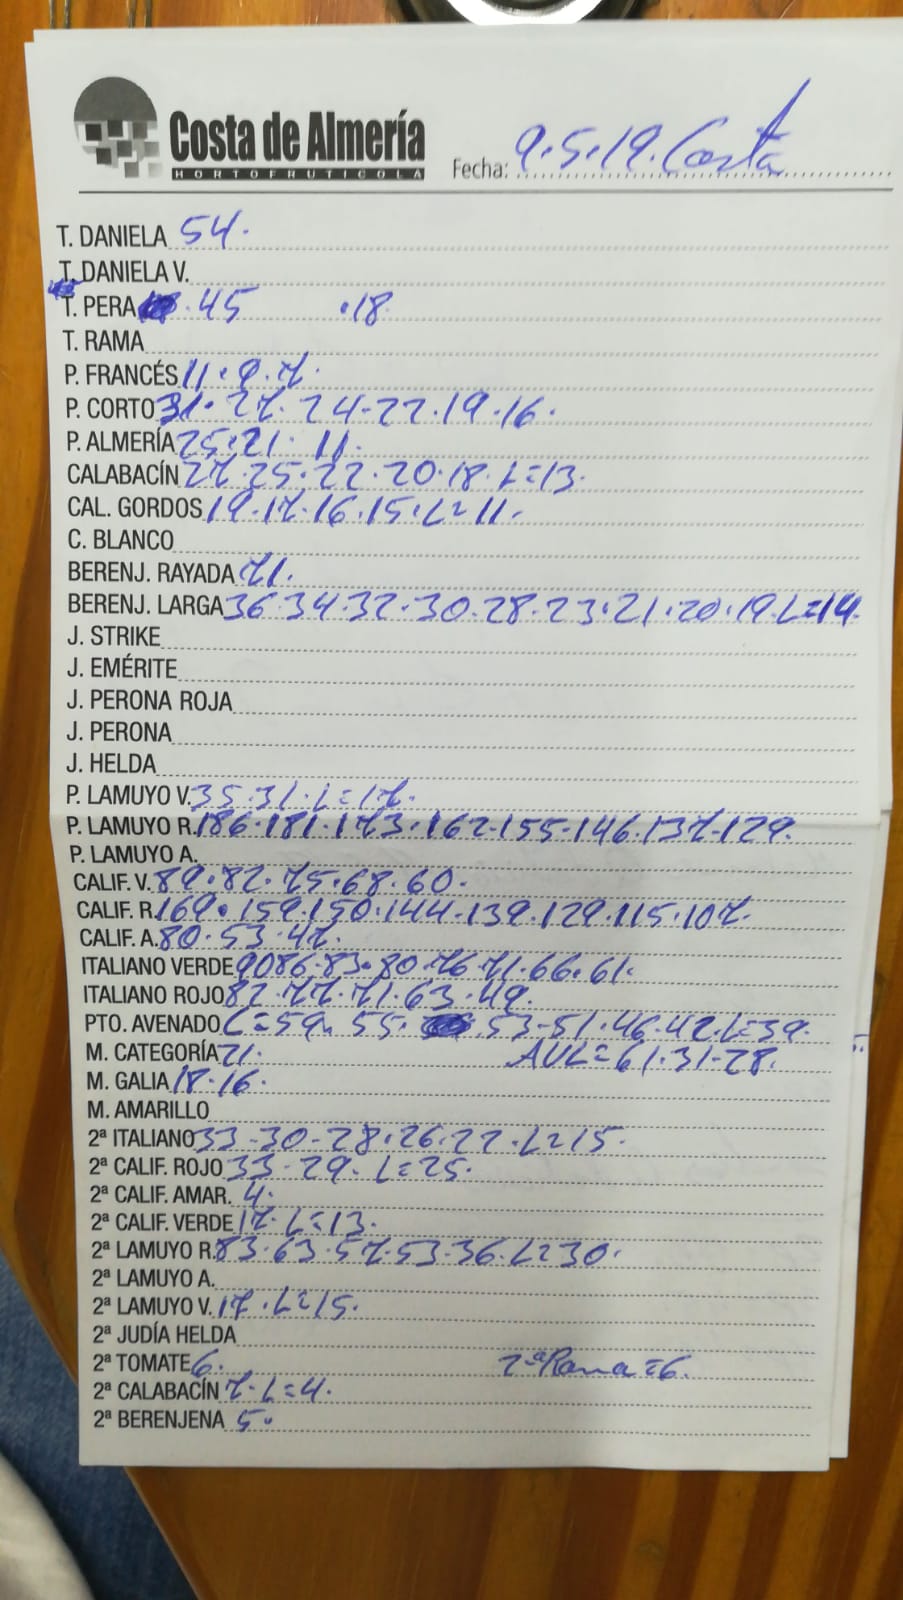 Costa de Almería
HORTOFRUTICOLA
Fecha: 9.5.19. Costa
T. DANIELA 54.
T. DANIELA V.
T. PERA . 45 .18
T. RAMA
P. FRANCÉS 11.9.7.
P. CORTO 31. 27. 24-22.19.16.
P. ALMERÍA 25.21. 11.
CALABACÍN 27.25.22.20.18.L=13.
CAL. GORDOS 19.17.16.15.L=11.
C. BLANCO
BERENJ. RAYADA 71.
BERENJ. LARGA 36.34.32.30.28.23.21.20.19.L=14.
J. STRIKE
J. EMÉRITE
J. PERONA ROJA
J. PERONA
J. HELDA
P. LAMUYO V. 35.31.L=17.
P. LAMUYO R. 186.181.173.162-155-146.137-129.
P. LAMUYO A.
CALIF. V. 89.82.75.68.60.
CALIF. R. 169.159.150.144-139.129.115.107.
CALIF. A. 80.53.47.
ITALIANO VERDE 90 86.83.80.76.71.66.61.
ITALIANO ROJO 82.77.71.63.49.
PTO. AVENADO L=59. 55. 53-51.46.42.L=39.
M. CATEGORÍA 21. AVL=61.31-28.
M. GALIA 18.16.
M. AMARILLO
2ª ITALIANO 33-30-28.26.22.L=15.
2ª CALIF. ROJO 33-29.L=25.
2ª CALIF. AMAR. 4.
2ª CALIF. VERDE 17.L=13.
2ª LAMUYO R. 83.63.57.53.36.L=30.
2ª LAMUYO A.
2ª LAMUYO V. 17.L=15.
2ª JUDÍA HELDA
2ª TOMATE 6. 2ªRama=6.
2ª CALABACÍN 7.L=4.
2ª BERENJENA 5.